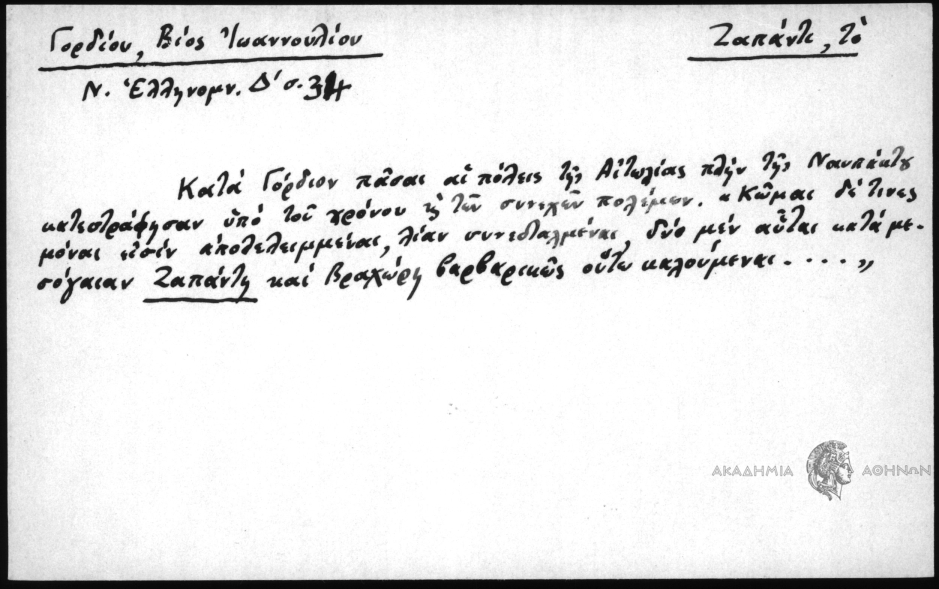 Γορδίου, Βίος Ἰωαννουλίου
Ζαπάντι, τὸ
Ν. Ἑλληνομν. Δ' σ. 34
Κατά Γόρδιον πᾶσαι αἱ πόλεις τῆς Αἰτωλίας πλήν τῆς Ναυπάκτου
κατεστράφησαν ὑπό τοῦ χρόνου κ τῶν συνεχῶν πολέμων. «Κῶμαι δέ τινες
μόναι εἰσίν ἀπολελειμμέναι, λίαν συνεσταλμέναι, δύο μέν αὗται κατά με-
σόγαιαν Ζαπάντη καί Βραχώρη βαρβαρικῶς οὕτω καλούμεναι....»
ΑΚΑΔΗΜΙΑ ΑΘΗΝΩΝ